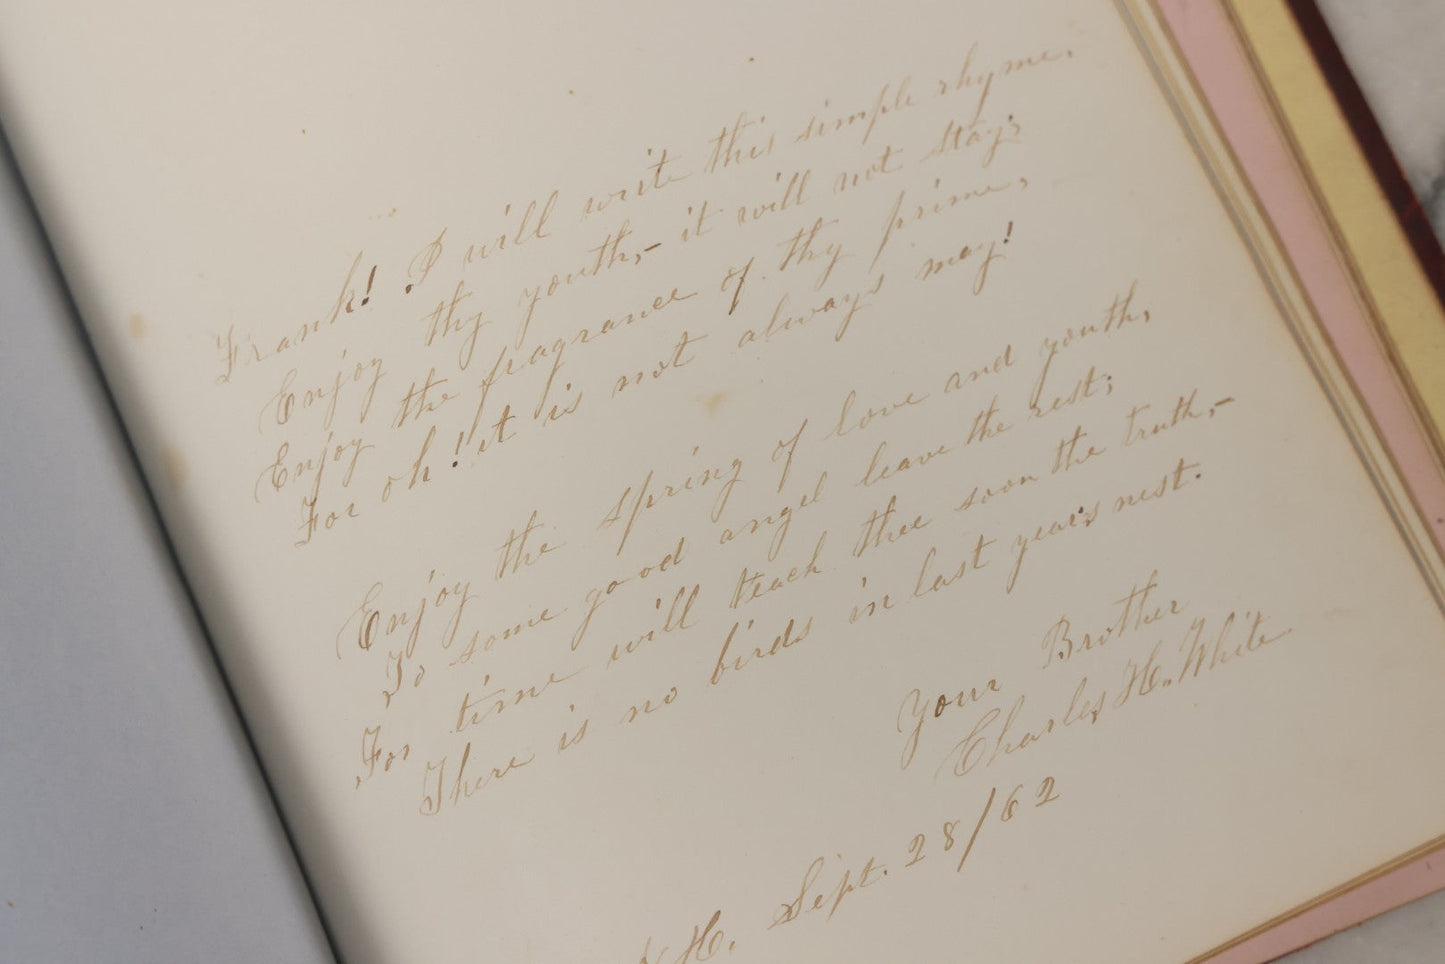 Frank! I will write this simple rhyme.
Enjoy thy youth,- it will not stay;
Enjoy the fragrance of thy prime,
For oh! it is not always may!
Enjoy the spring of love and youth,
To some good angel leave the rest;
For time will teach thee soon the truth,-
There is no birds in last year's nest.
Your Brother
Charles H. White
H. Sept. 28/62